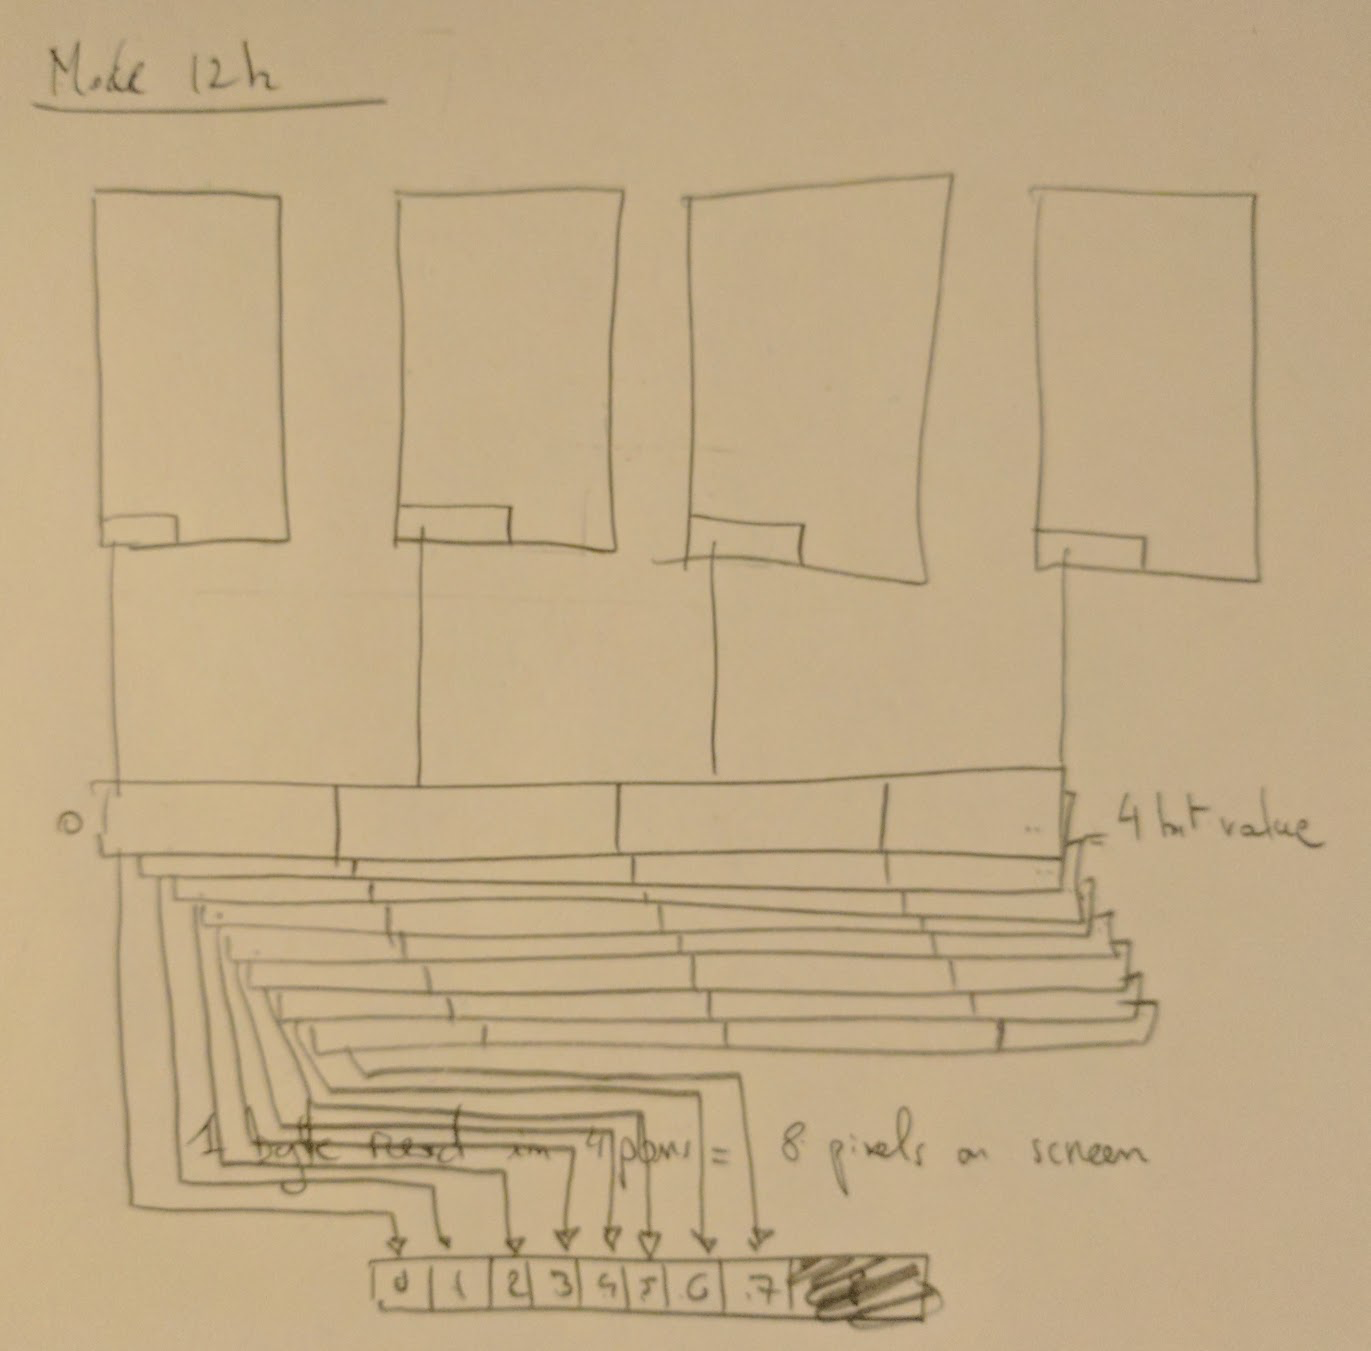 Mode 12h
0
= 4 bit value
1 byte read in 4 pbms = 8 pixels on screen
0 1 2 3 4 5 6 7